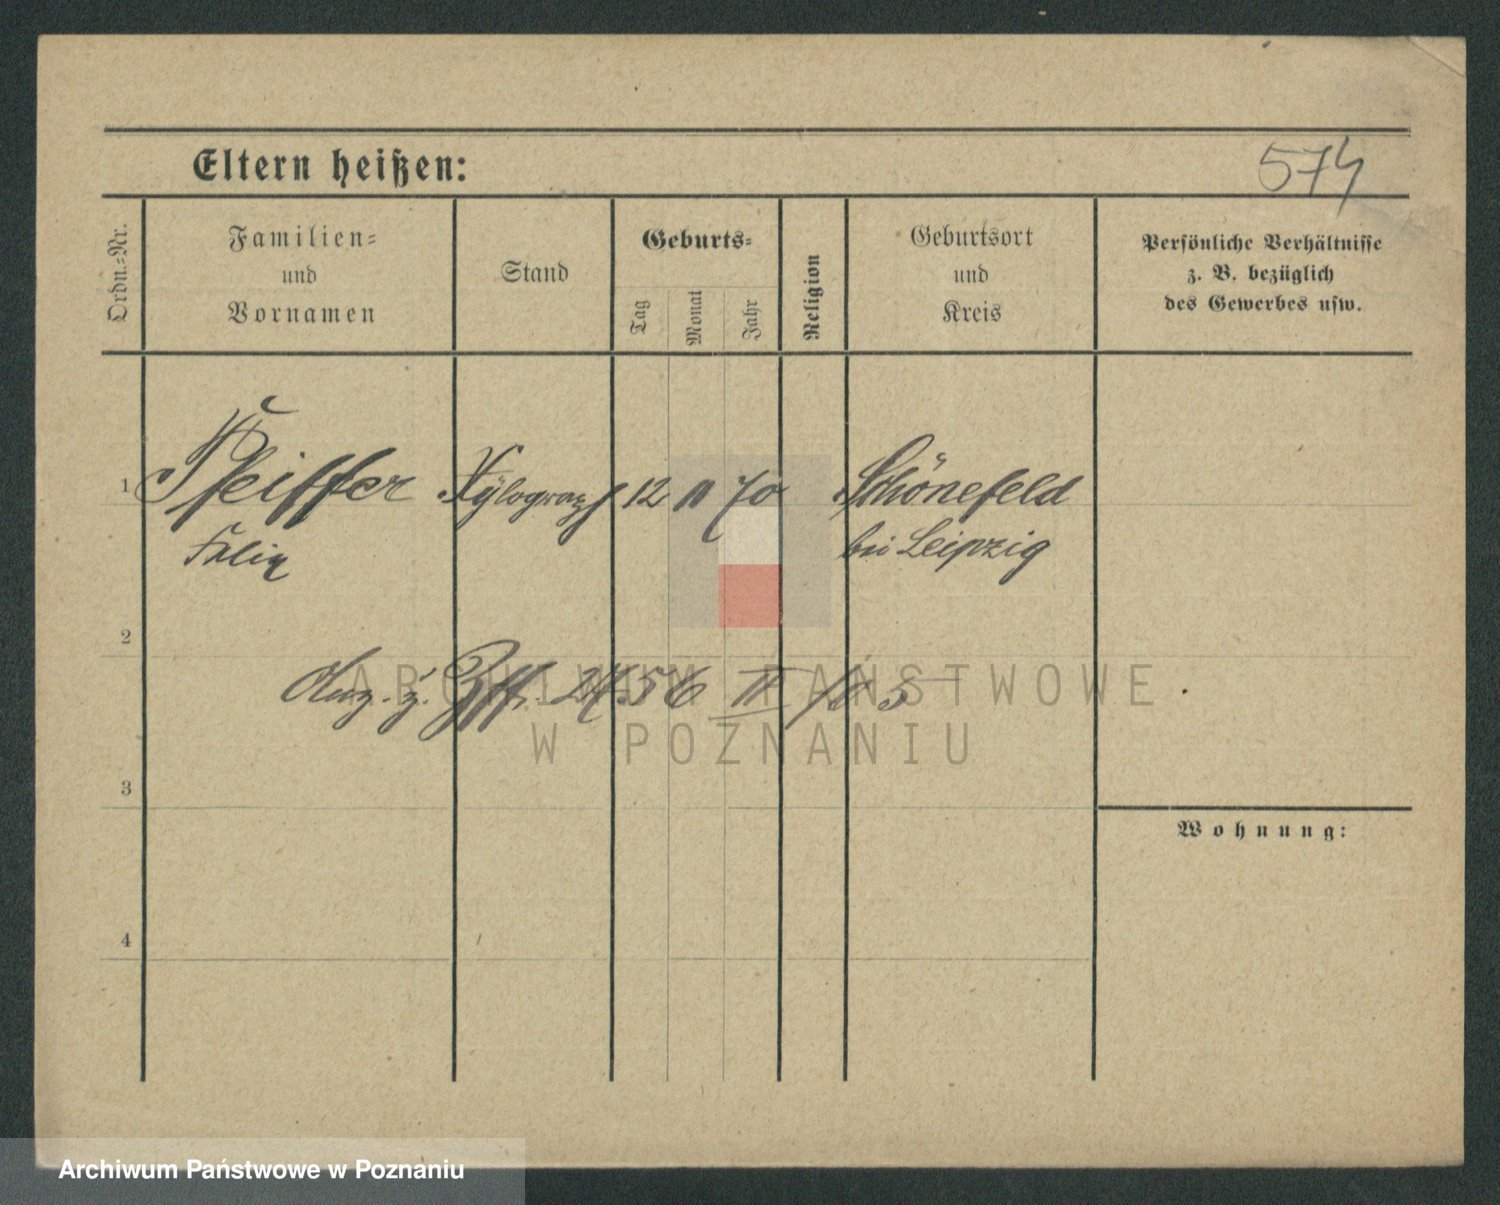 Eltern heißen:
574
Ordn.-Nr.
Familien-
und
Vornamen
Stand
Geburts-
Tag
Monat
Jahr
Religion
Geburtsort
und
Kreis
Persönliche Verhältnisse
z. B. bezüglich
des Gewerbes usw.
1 Pfeiffer Xylograph 12 11 70 Schönefeld
Felix bei Leipzig
2
24 56 II 05
3
Wohnung:
4
ARCHIWUM PAŃSTWOWE
W POZNANIU
Archiwum Państwowe w Poznaniu